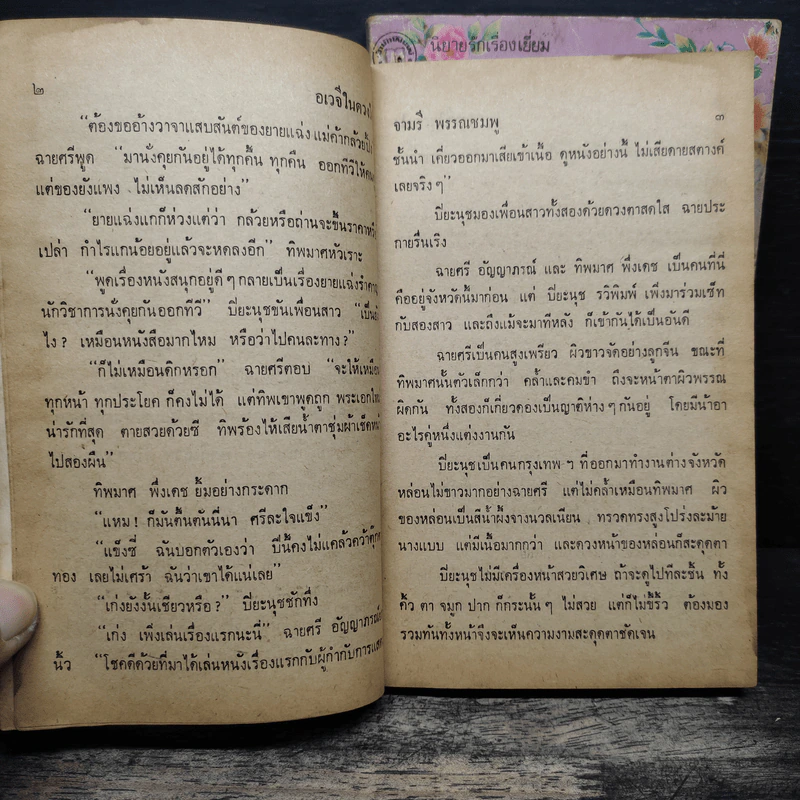 นิยายรักเรื่องเยี่ยม
๒
อเวจีในดวง
“ต้องขออ้างวาจาแสบสันต์ของยายแฉ่ง แม่ค้ากล้วยปิ้ง
ฉายศรีพูด “มานั่งคุยกันอยู่ได้ทุกคื้น ทุกคืน ออกทีวีให้
แต่ของยังแพง ไม่เห็นลดสักอย่าง”
“ยายแฉ่งแกก็ห่วงแต่ว่า กล้วยหรือถ่านจะขึ้นราคา
เปล่า กำไรแกน้อยอยู่แล้วจะหดลงอีก” ทิพมาศหัวเราะ
“พูดเรื่องหนังสนุกอยู่ดี ๆ กลายเป็นเรื่องยายแฉ่งรำคาญ
นักวิชาการนั่งคุยกันออกทีวี” ปิยะนุชขันเพื่อนสาว “เป็น
ไง ? เหมือนหนังสือมากไหม หรือว่าไปคนละทาง ?”
“ก็ไม่เหมือนดิกหรอก” ฉายศรีตอบ “จะให้เหมือน
ทุกหน้า ทุกประโยค ก็คงไม่ได้ แต่ทิพเขาพูดถูก พระเอก
น่ารักที่สุด ตายสวยด้วยซี ทิพร้องไห้เสียน้ำตาชุ่มผ้าเช็ดหน้า
ไปสองผืน”
ทิพมาศ พึ่งเดช ยิ้มอย่างกระดาก
“แหม ! ก็มันตื้นตันนี่นา ศรีละใจแข็ง”
“แข็งซี่ ฉันบอกตัวเองว่า ปีนี้คงไม่แคล้วคว้าตุ๊ก
ทอง เลยไม่เศร้า ฉันว่าเขาได้แน่เลย”
“เก่งยังงั้นเชียวหรือ ?” ปิยะนุชชักทึ่ง
“เก่ง เพิ่งเล่นเรื่องแรกนะนี่” ฉายศรี อัญญาภรณ์
นิ้ว “โชคดีด้วยที่มาได้เล่นหนังเรื่องแรกกับผู้กำกับการแสดง
จามรี พรรณชมพู
๓
ชั้นนำ เคี่ยวออกมาเสียเข้าเนื้อ ดูหนังอย่างนี้ ไม่เสียดายสตางค์
เลยจริง ๆ”
ปิยะนุชมองเพื่อนสาวทั้งสองด้วยดวงตาสดใส ฉายประ
กายรื่นเริง
ฉายศรี อัญญาภรณ์ และ ทิพมาศ พึ่งเดช เป็นคนที่นี่
คืออยู่จังหวัดนี้มาก่อน แต่ ปิยะนุช รวิพิมพ์ เพิ่งมาร่วมเซ็ท
กับสองสาว และถึงแม้จะมาทีหลัง ก็เข้ากันได้เป็นอันดี
ฉายศรีเป็นคนสูงเพรียว ผิวขาวจัดอย่างลูกจีน ขณะที่
ทิพมาศนั้นตัวเล็กกว่า คล้ำและคมขำ ถึงจะหน้าตาผิวพรรณ
ผิดกัน ทั้งสองก็เกี่ยวดองเป็นญาติห่าง ๆ กันอยู่ โดยมีน้าอา
อะไรคู่หนึ่งแต่งงานกัน
ปิยะนุชเป็นคนกรุงเทพ ฯ ที่ออกมาทำงานต่างจังหวัด
หล่อนไม่ขาวมากอย่างฉายศรี แต่ไม่คล้ำเหมือนทิพมาศ ผิว
ของหล่อนเป็นสีน้ำผึ้งจางนวลเนียน ทรวดทรงสูงโปร่งละม้าย
นางแบบ แต่มีเนื้อมากกว่า และดวงหน้าของหล่อนก็สะดุดตา
ปิยะนุชไม่มีเครื่องหน้าสวยวิเศษ ถ้าจะดูไปทีละชิ้น ทั้ง
คิ้ว ตา จมูก ปาก ก็กระนั้น ๆ ไม่สวย แต่ก็ไม่ขี้ริ้ว ต้องมอง
รวมกันทั้งหน้าจึงจะเห็นความงามสะดุดตาชัดเจน